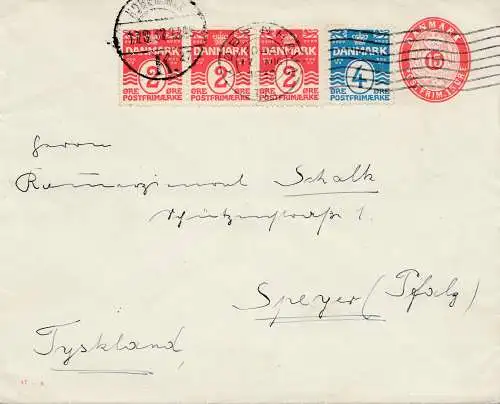 DANMARK DANMARK DANMARK DANMARK DANMARK
2 2 2 4 15
ØRE ØRE ØRE ØRE ØRE ØRE ØRE ØRE
POSTFRIMÆRKE POSTFRIMÆRKE POSTFRIMÆRKE POSTFRIMÆRKE
Herrn
Kommerzienrat Schalk
Schützenstraße 1.
Speyer (Pfalz)
Tyskland,